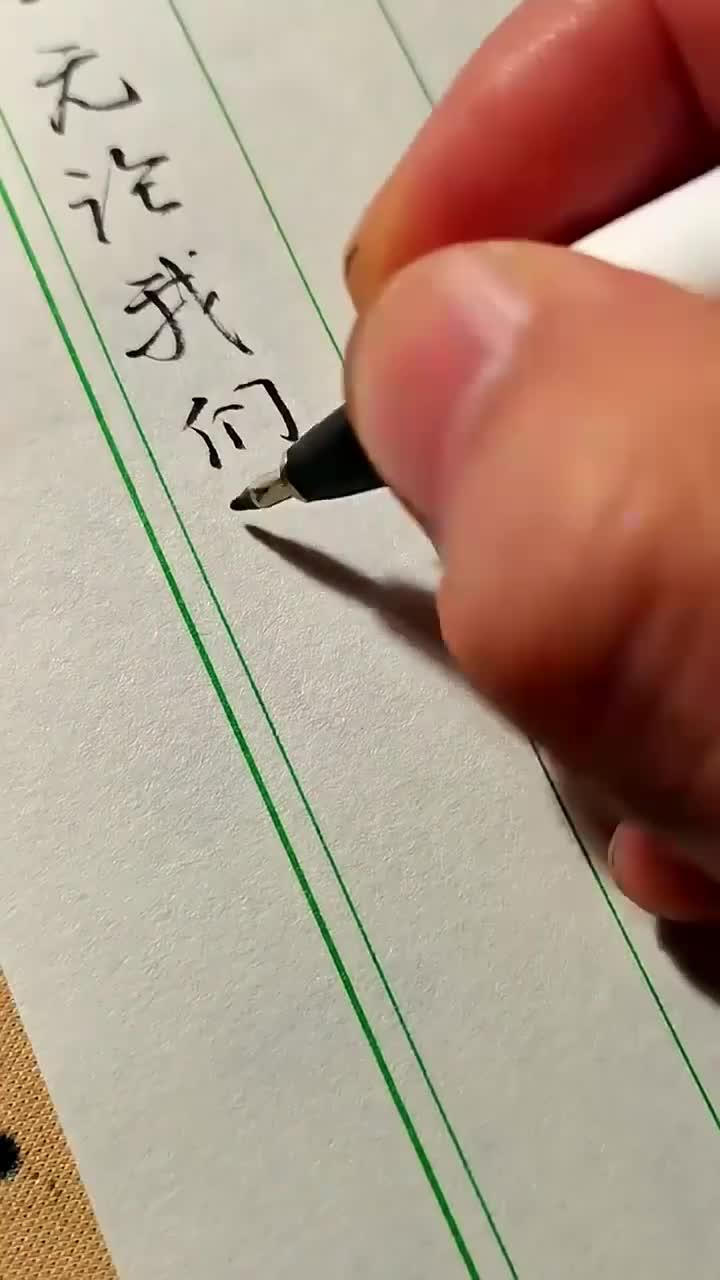 无论我们